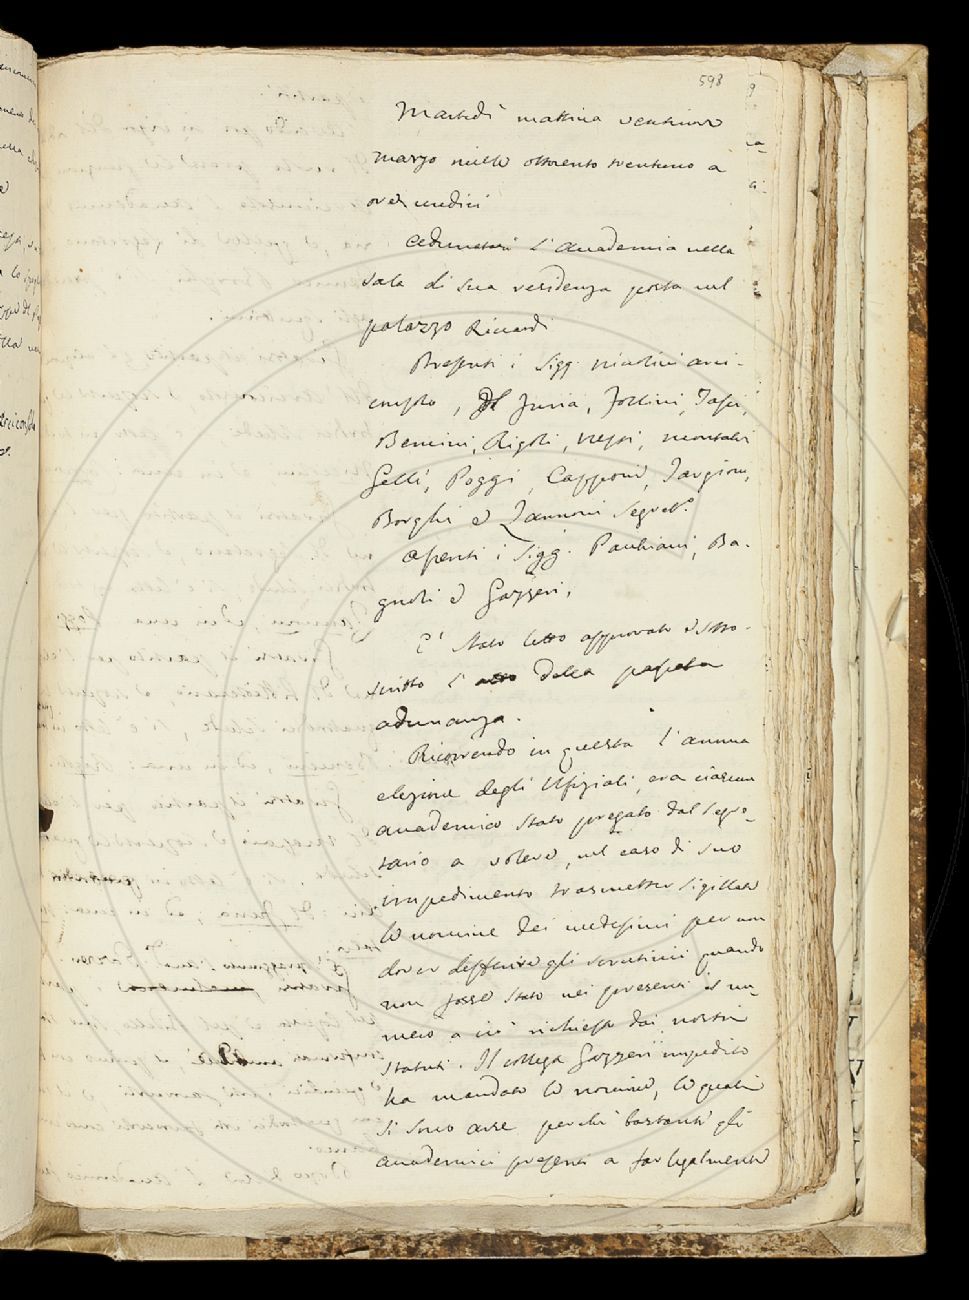 593
Martedì mattina ventinove
marzo mille ottocento trentuno a
ore undici
Adunatasi l'Accademia nella
sala di sua residenza posta nel
palazzo Riccardi
Presenti i Sigg. Niccolini arci-
consolo, Del Furia, Follini,
Bencini, Rigoli, Nesti, Montalvi
Gelli, Poggi, Capponi, Targioni,
Borghi e Zannoni Segret.º
Assenti i Sigg. Paulliani, Ba-
gnoli e Gazzeri,
E' stato letto approvato e sotto-
scritto l'atto della passata
adunanza.
Ricorrendo in questa l'annua
elezione degli Ufiziali, era ciascun
accademico stato pregato dal Segre-
tario a volere, nel caso di suo
impedimento trasmetter sigillate
le nomine dei medesimi per non
dover differire gli scrutinii quando
non fosse stato nei presenti il nu-
mero a ciò richiesto dai nostri
statuti. Il collega Gazzeri impedito
ha mandato le nomine, le quali
si sono arse perchè bastanti gli
accademici presenti a far legalmente